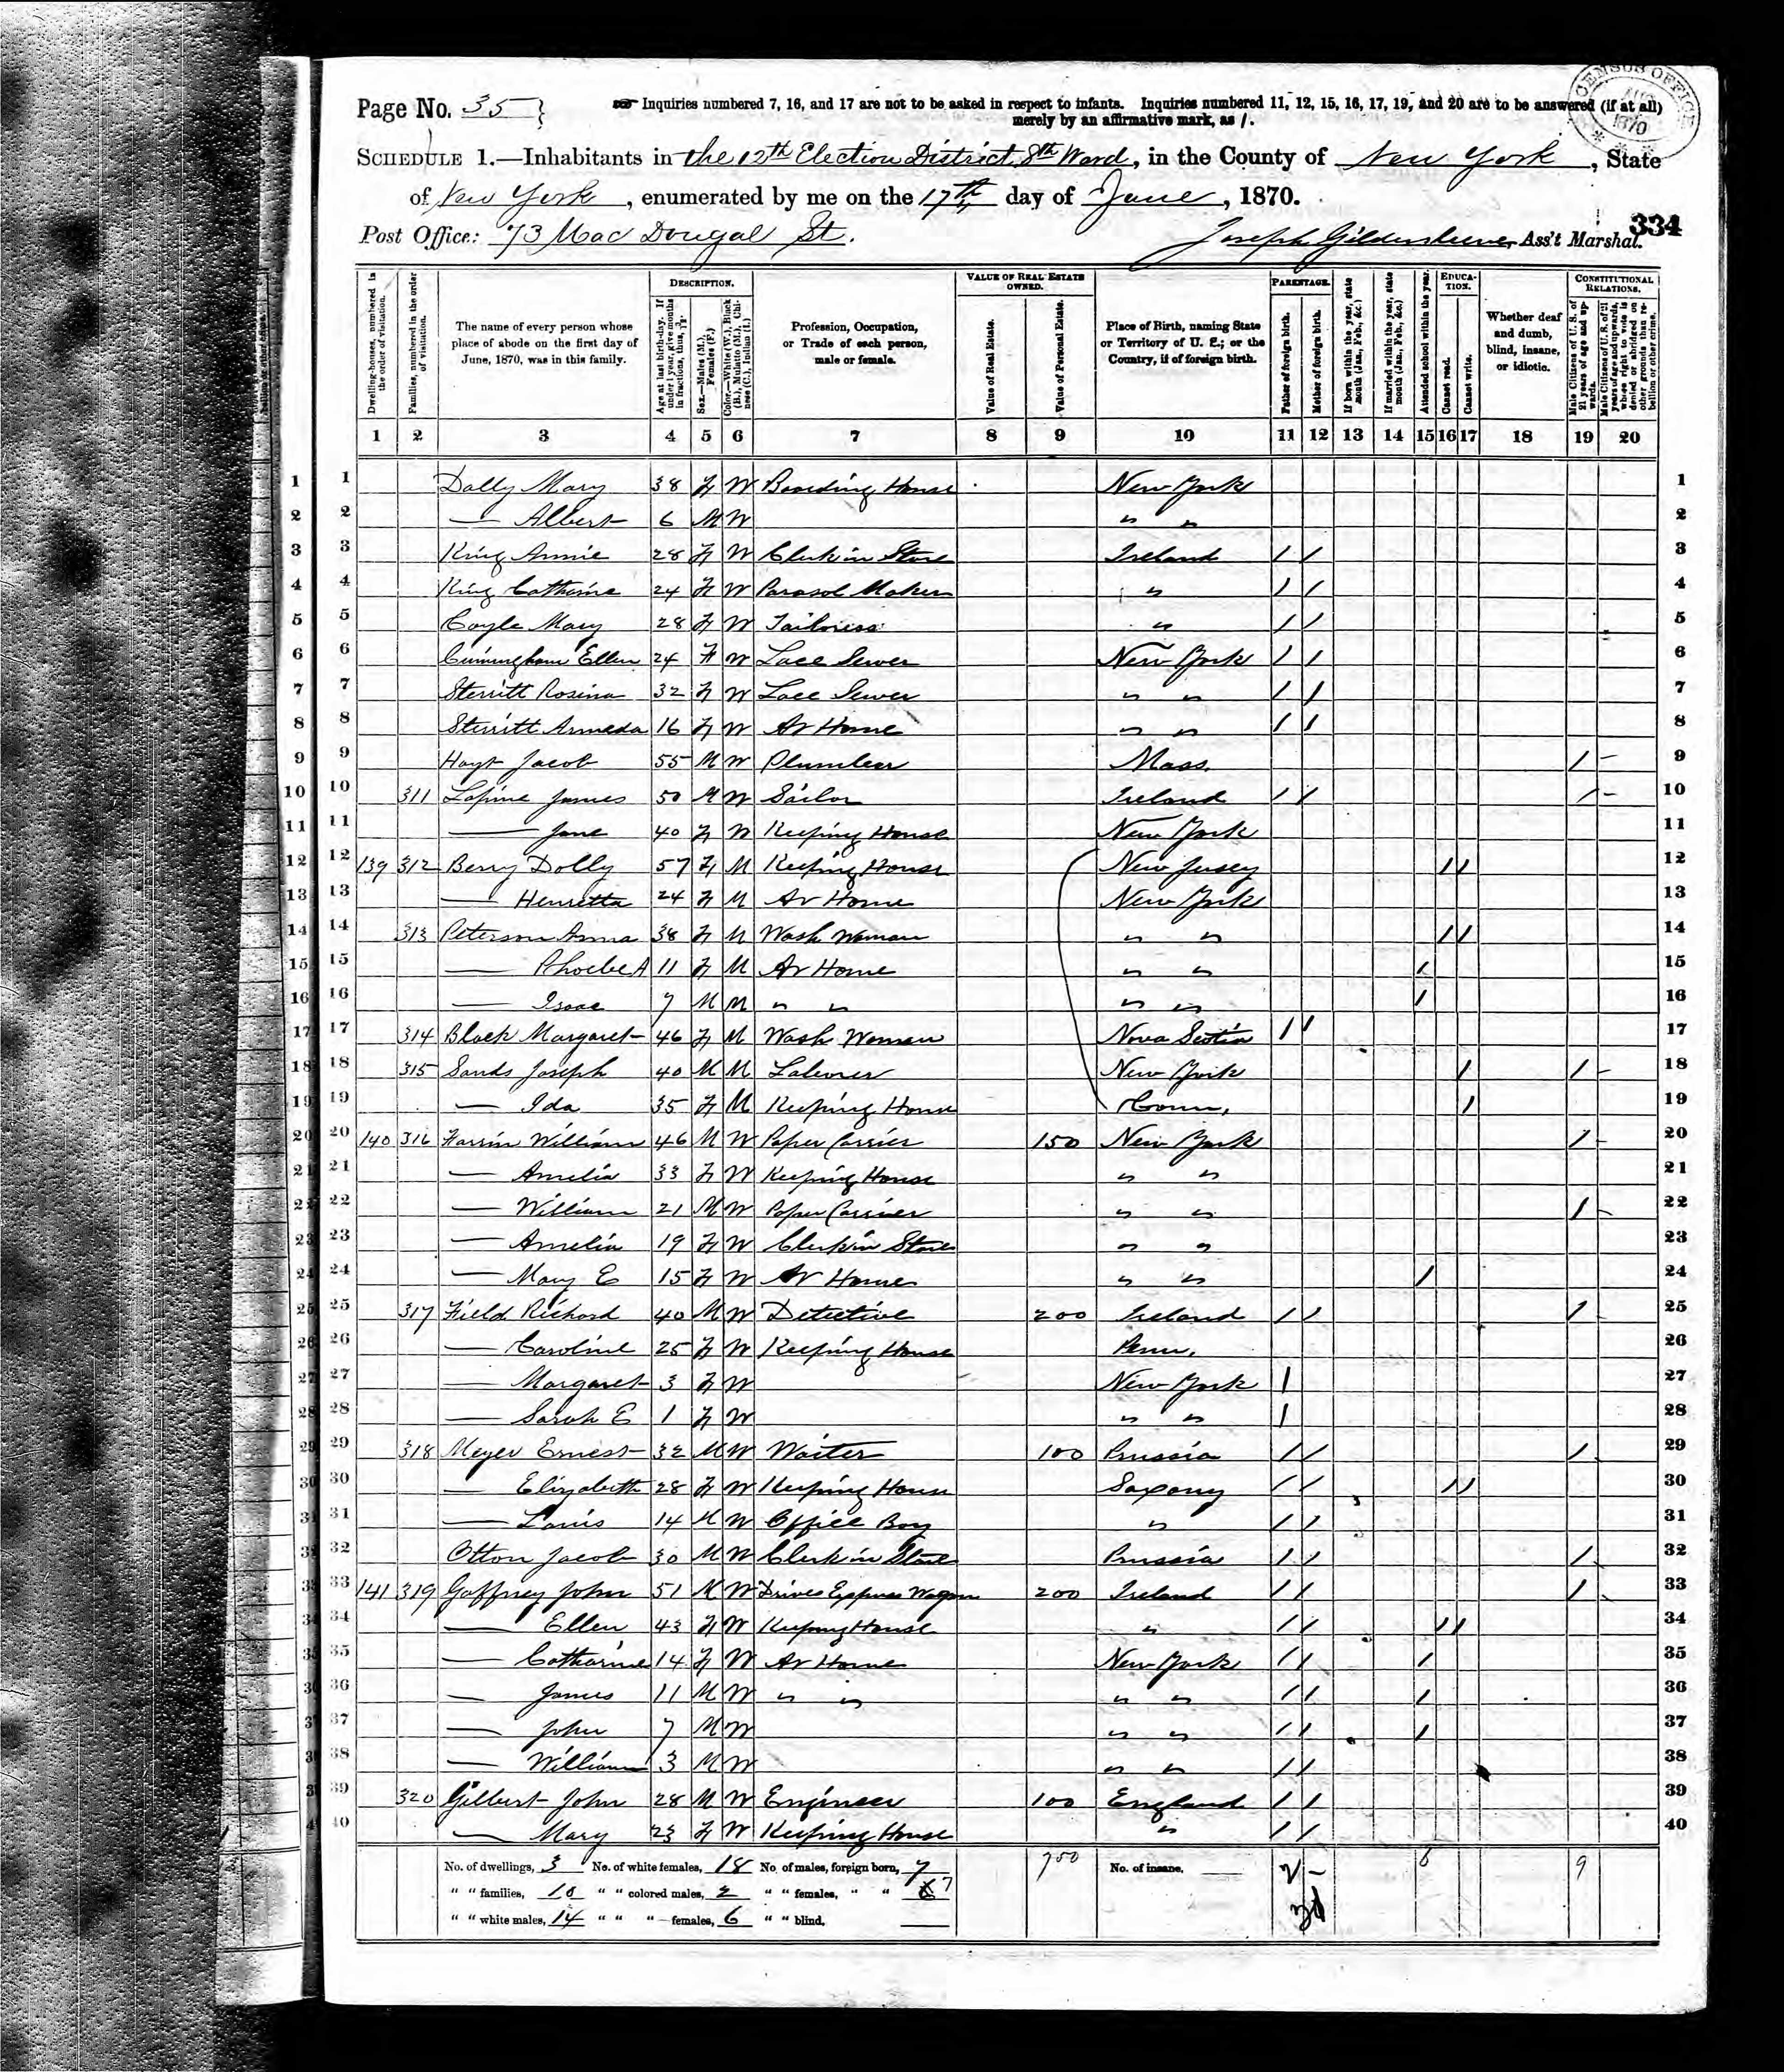 Page No. 35
Inquiries numbered 7, 16, and 17 are not to be asked in respect to infants. Inquiries numbered 11, 12, 15, 16, 17, 19, and 20 are to be answered (if at all)
merely by an affirmative mark, as /.
CENSUS OFFICE 1870
SCHEDULE 1.—Inhabitants in the 12th Election District 8th Ward, in the County of New York, State
of New York, enumerated by me on the 17th day of June, 1870.
334
Post Office: 73 Mac Dougal St. Joseph Gildersleeve, Ass't Marshal.
Dwelling-houses, numbered in the order of visitation.
Families, numbered in the order of visitation.
The name of every person whose place of abode on the first day of June, 1870, was in this family.
DESCRIPTION.
Age at last birth-day. If under 1 year, give months in fractions, thus, 3/12.
Sex.—Males (M.), Females (F.)
Color.—White (W.), Black (B.), Mulatto (M.), Chinese (C.), Indian (I.)
Profession, Occupation, or Trade of each person, male or female.
VALUE OF REAL ESTATE OWNED.
Value of Real Estate.
Value of Personal Estate.
Place of Birth, naming State or Territory of U. S.; or the Country, if of foreign birth.
PARENTAGE.
Father of foreign birth.
Mother of foreign birth.
If born within the year, state month (Jan., Feb., &c.)
If married within the year, state month (Jan., Feb., &c.)
Attended school within the year.
EDUCATION.
Cannot read.
Cannot write.
Whether deaf and dumb, blind, insane, or idiotic.
CONSTITUTIONAL RELATIONS.
Male Citizens of U. S. of 21 years of age and upwards.
Male Citizens of U. S. of 21 years of age and upwards, whose right to vote is denied or abridged on other grounds than rebellion or other crime.
1 2 3 4 5 6 7 8 9 10 11 12 13 14 15 16 17 18 19 20
1 1 Dally Mary 38 F W Boarding House New York 1
2 2 — Albert 6 M W " " 2
3 3 King Annie 28 F W Clerk in Store Ireland / / 3
4 4 King Catherine 24 F W Parasol Maker " / / 4
5 5 Coyle Mary 28 F W Tailoress " / / 5
6 6 Cunningham Ellen 24 F W Lace Sewer New York / / 6
7 7 Sterritt Rosina 32 F W Lace Sewer " " / / 7
8 8 Sterritt Armeda 16 F W At Home " " / / 8
9 9 Hoyt Jacob 55 M W Plumber Mass. / 9
10 10 311 Lapine James 50 M W Sailor Ireland / / / 10
11 11 — Jane 40 F W Keeping House New York 11
12 12 139 312 Berry Dolly 57 F M Keeping House New Jersey / / 12
13 13 — Henrietta 24 F M At Home New York 13
14 14 313 Peterson Anna 38 F M Wash Woman " " / / 14
15 15 — Phoebe A 11 F M At Home " " / 15
16 16 — Isaac 7 M M " " " " / 16
17 17 314 Black Margaret 46 F M Wash Woman Nova Scotia / / 17
18 18 315 Sands Joseph 40 M M Laborer New York / / 18
19 19 — Ida 35 F M Keeping House Conn. / 19
20 20 140 316 Farrin William 46 M W Paper Carrier 150 New York / 20
21 21 — Amelia 33 F W Keeping House " " 21
22 22 — William 21 M W Paper Carrier " " / 22
23 23 — Amelia 19 F W Clerk in Store " " 23
24 24 — Mary E 15 F W At Home " " / 24
25 25 317 Field Richard 40 M W Detective 200 Ireland / / / 25
26 26 — Caroline 25 F W Keeping House Penn. 26
27 27 — Margaret 3 F W New York / 27
28 28 — Sarah E 1 F W " " / 28
29 29 318 Meyer Ernest 32 M W Waiter 100 Prussia / / / 29
30 30 — Elizabeth 28 F W Keeping House Saxony / / / / 30
31 31 — Louis 14 M W Office Boy " / / 31
32 Otton Jacob 30 M W Clerk in Store Prussia / / / 32
33 141 319 Gaffney John 51 M W Drives Express Wagon 200 Ireland / / / 33
34 — Ellen 43 F W Keeping House " / / / / 34
35 — Catharine 14 F W At Home New York / / / 35
36 — James 11 M W " " " " / / / 36
37 — John 7 M W " " / / / 37
38 — William 3 M W " " / / 38
39 320 Gilbert John 28 M W Engineer 100 England / / 39
40 — Mary 23 F W Keeping House " / / 40
No. of dwellings, 3 No. of white females, 18 No. of males, foreign born, 7 750 No. of insane, 6 9
" " families, 10 " " colored males, 2 " " females, " " 7
" " white males, 14 " " " females, 6 " " blind,